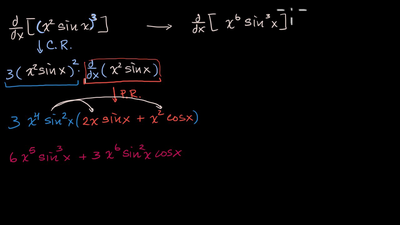 d/dx [(x² sin x)³] → d/dx [x⁶ sin³ x]
↓ C.R.
3(x² sin x)² · d/dx (x² sin x)
↓ P.R.
3 x⁴ sin² x (2x sin x + x² cos x)
6x⁵ sin³ x + 3x⁶ sin² x cos x